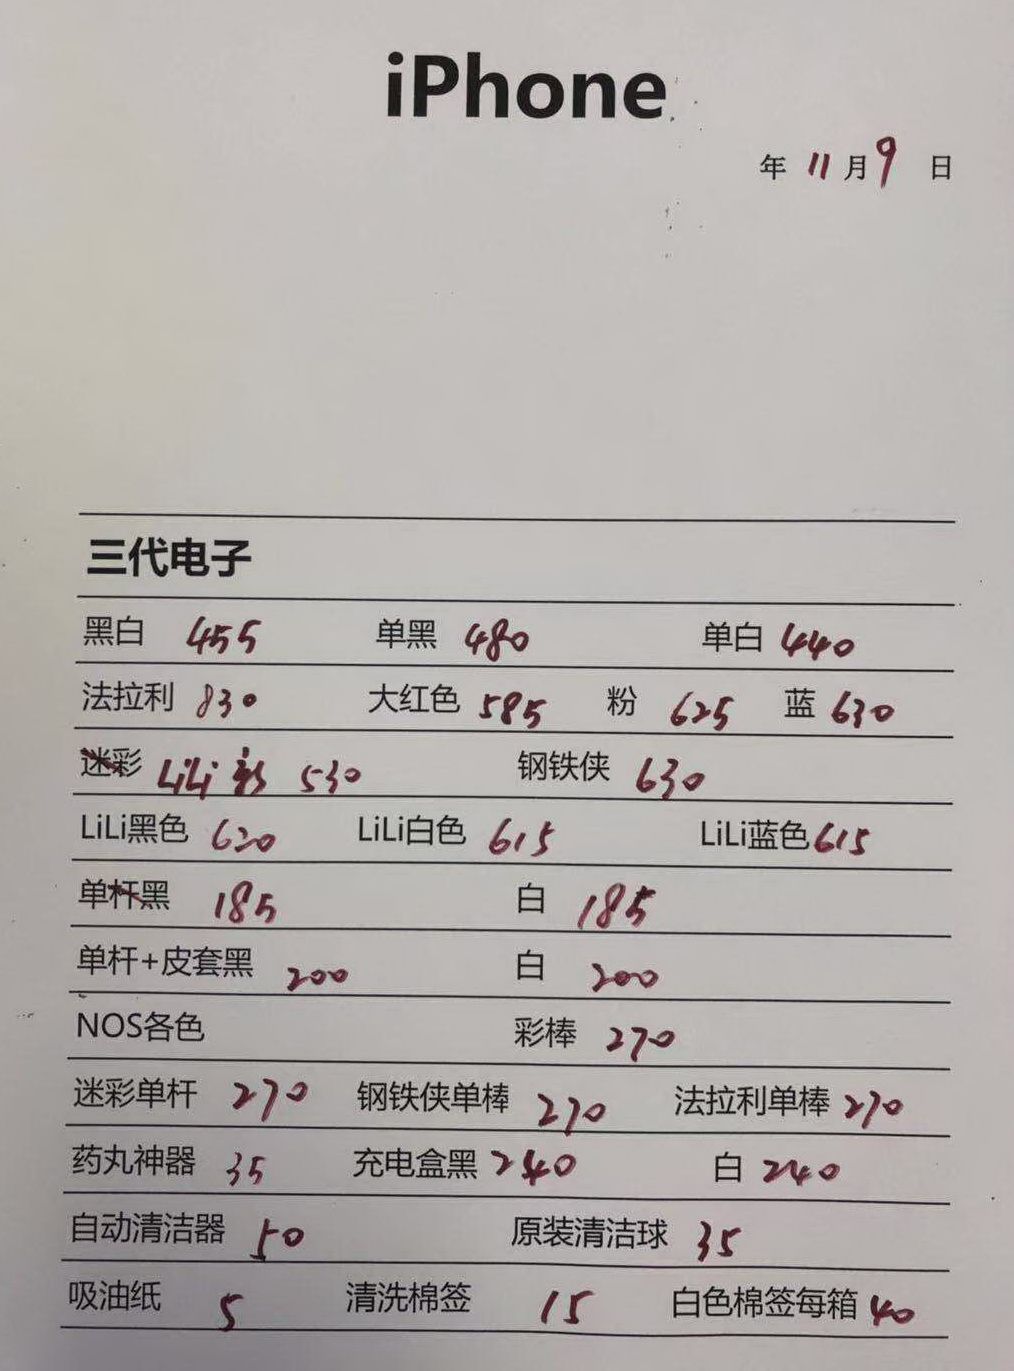 iPhone
年 11 月 9 日
三代电子
黑白 455 单黑 480 单白 440
法拉利 830 大红色 585 粉 625 蓝 630
迷彩 LiLi 彩 530 钢铁侠 630
LiLi黑色 620 LiLi白色 615 LiLi蓝色 615
单杆黑 185 白 185
单杆+皮套黑 200 白 200
NOS各色 彩棒 270
迷彩单杆 270 钢铁侠单棒 270 法拉利单棒 270
药丸神器 35 充电盒黑 240 白 240
自动清洁器 50 原装清洁球 35
吸油纸 5 清洗棉签 15 白色棉签每箱 40